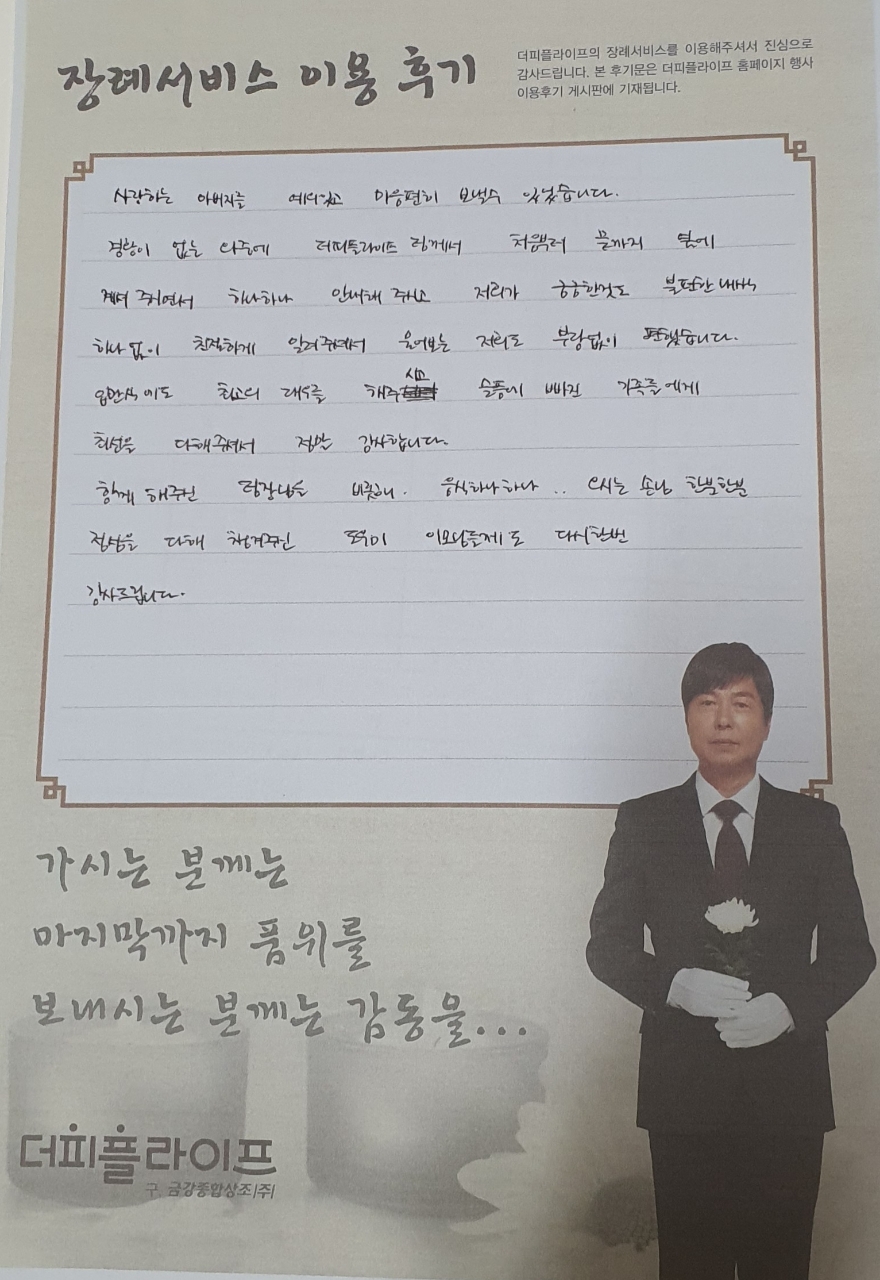 장례서비스 이용 후기
더피플라이프의 장례서비스를 이용해주셔서 진심으로
감사드립니다. 본 후기문은 더피플라이프 홈페이지 행사
이용후기 게시판에 기재됩니다.
사랑하는 아버지를 예의있고 마음편히 보낼수 있었습니다.
경황이 없는 와중에 더피플라이프 팀께서 처음부터 끝까지 옆에
계셔 주시면서 하나하나 안내해 주시고 저희가 궁금한것도 불편한 내색
하나 없이 친절하게 알려주셔서 물어보는 저희도 부담없이 편했습니다.
입관식에도 최고의 대우를 해주시고 슬픔에 빠진 가족들에게
최선을 다해주셔서 정말 감사합니다.
함께 해주신 팀장님을 비롯해. 음식하나하나.. 오시는 손님 한분한분
정성을 다해 챙겨주신 도우미 이모님들께도 다시한번
감사드립니다.
가시는 분께는
마지막까지 품위를
보내시는 분께는 감동을...
더피플라이프
구. 금강종합상조(주)